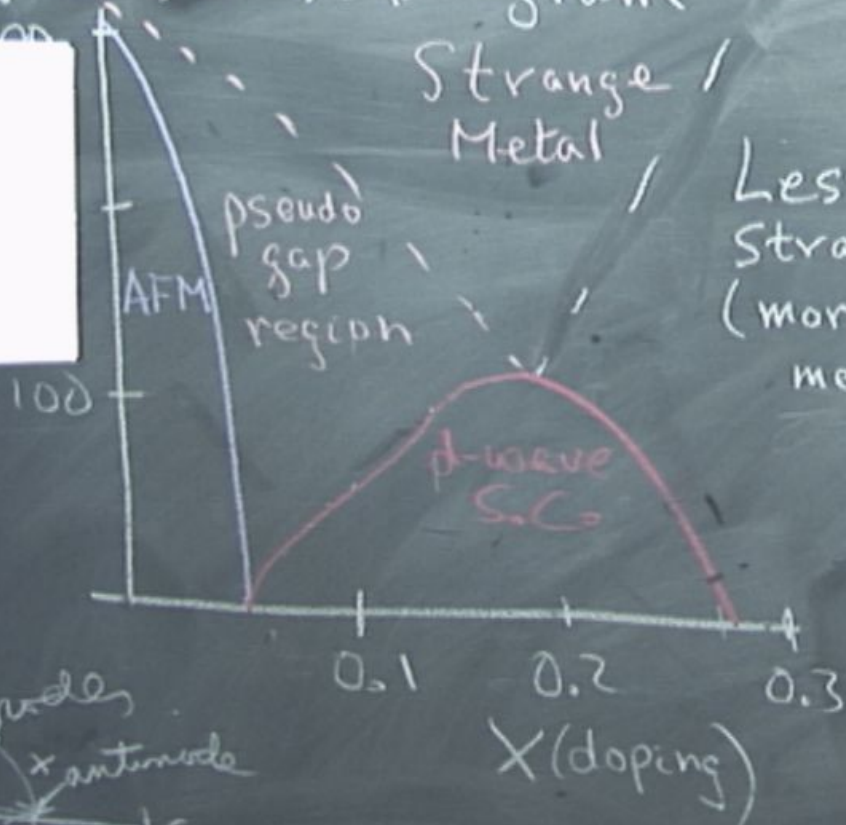 Strange
Metal
Les
Stra
(mor
me
pseudo
gap
region
AFM
100
d-wave
S.C.
0.1
0.2
0.3
X(doping)
x antinode